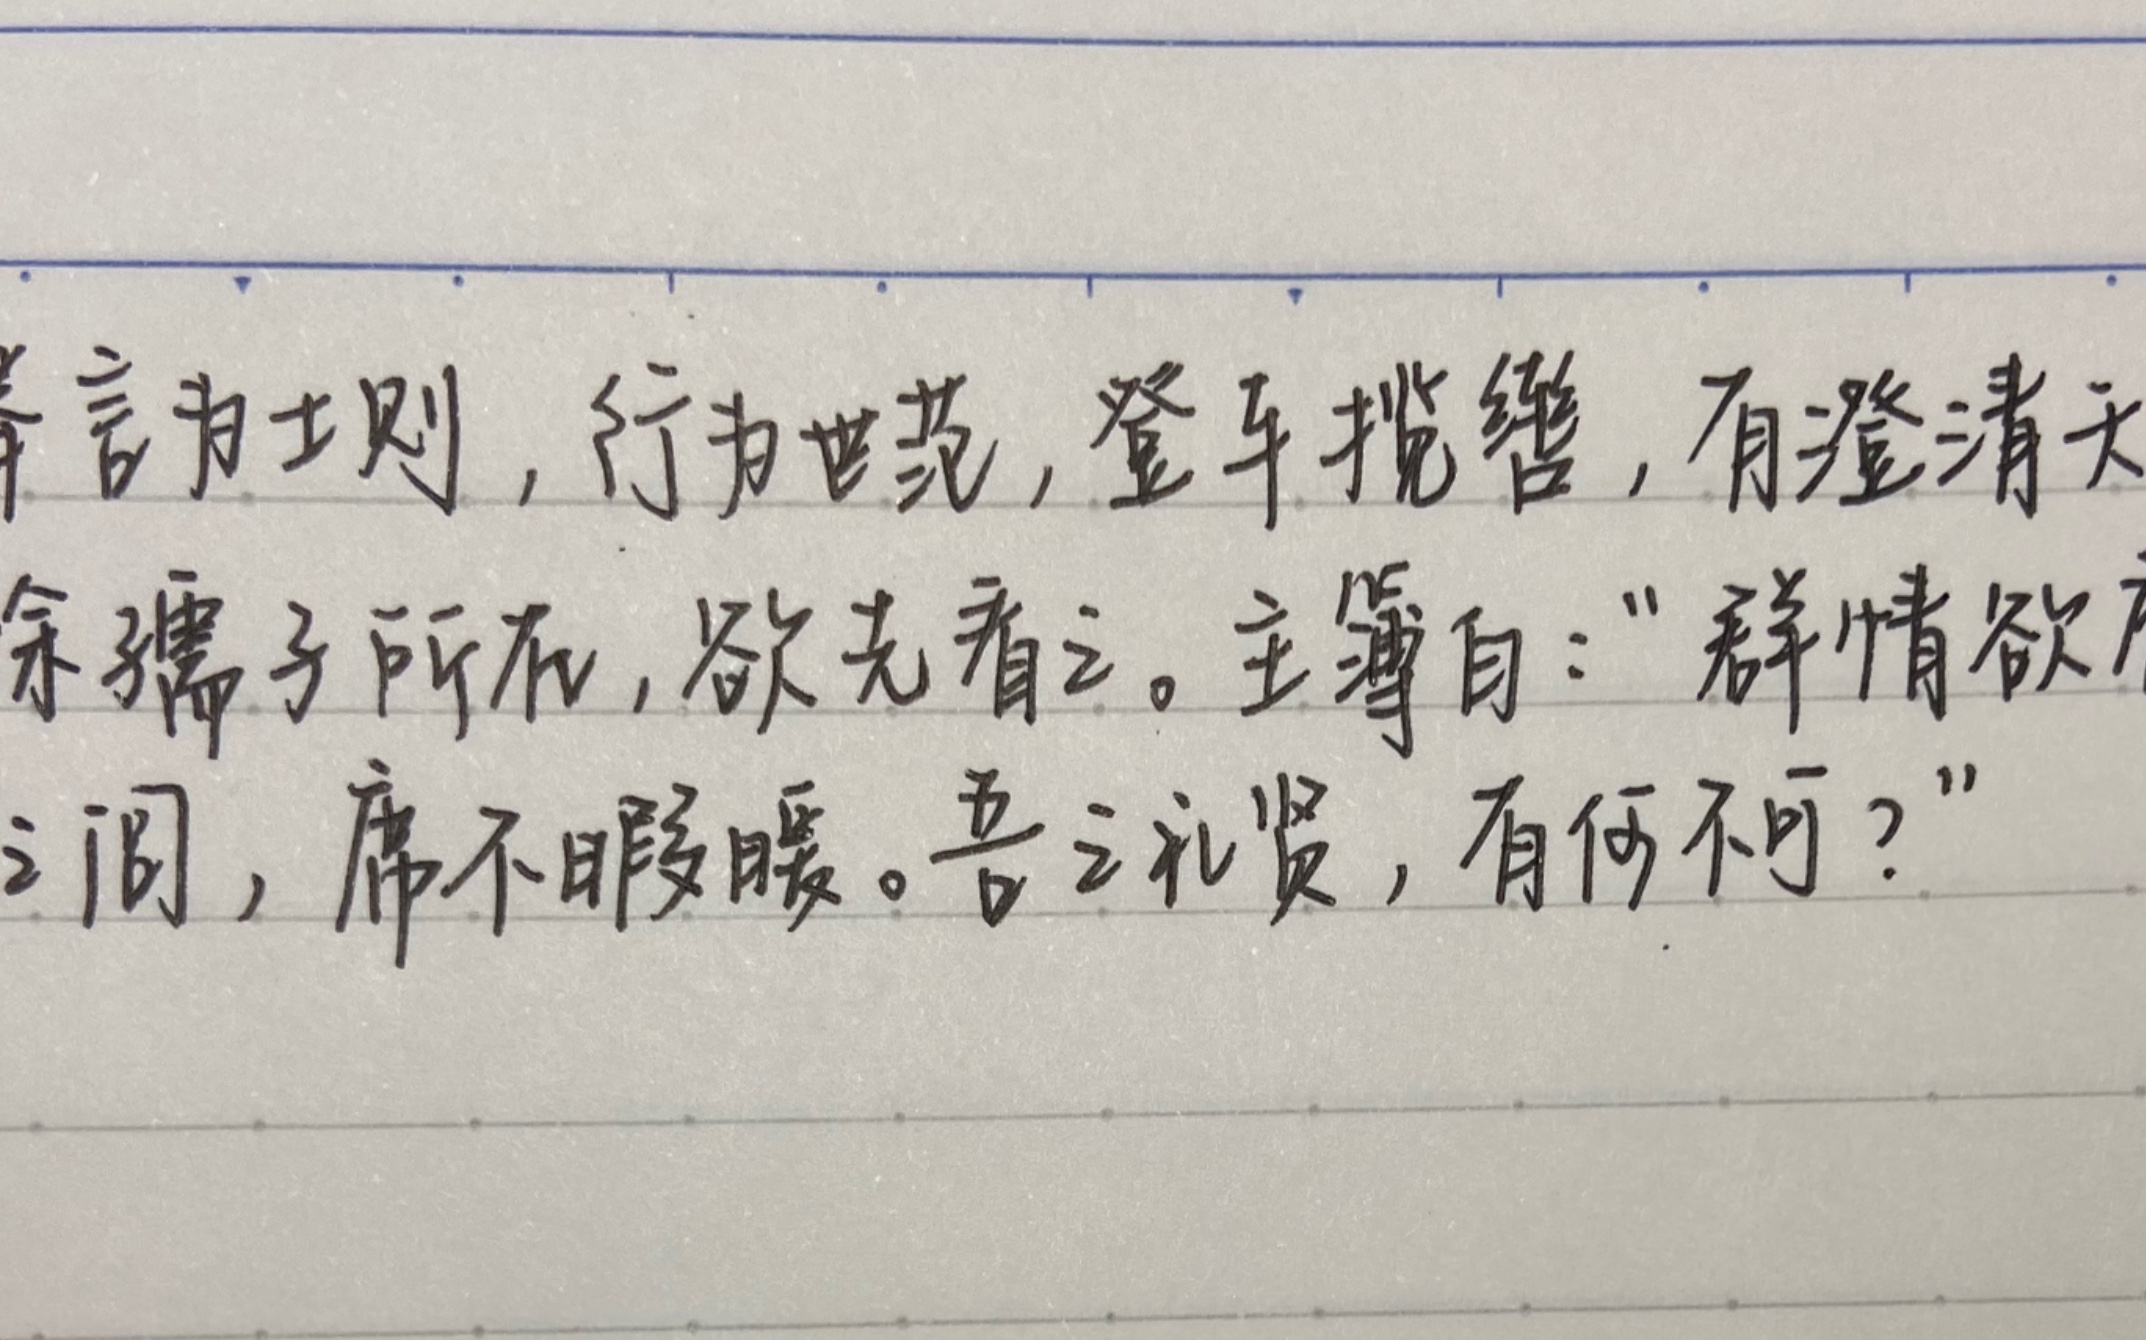 蕃言为士则，行为世范，登车揽辔，有澄清天
徐孺子所在，欲先看之。主簿白：“群情欲府
之间，席不暇暖。吾之礼贤，有何不可？”